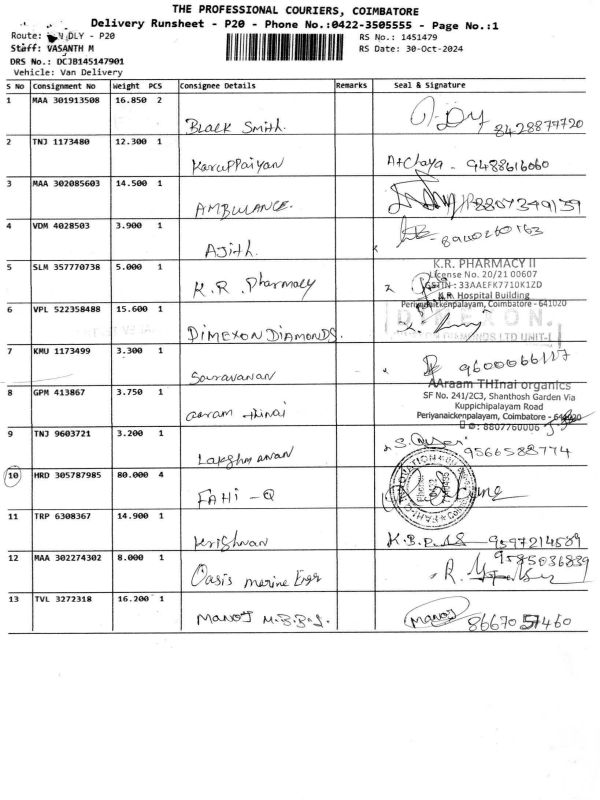 THE PROFESSIONAL COURIERS, COIMBATORE
Delivery Runsheet - P20 - Phone No.:0422-3505555 - Page No.:1
Route: DLY - P20
RS No.: 1451479
Staff: VASANTH M
RS Date: 30-Oct-2024
DRS No.: DCJB145147901
Vehicle: Van Delivery
S No Consignment No Weight PCS Consignee Details Remarks Seal & Signature
1 MAA 301913508 16.850 2
Black Smith. 8428877720
2 TNJ 1173480 12.300 1
Karuppaiyan 9488616060
3 MAA 302085603 14.500 1
AMBULANCE. 8807349139
4 VDM 4028503 3.900 1
Ajith.
5 SLM 357770738 5.000 1
K.R. Pharmacy
K.R. PHARMACY II
License No. 20/21 00607
GSTIN : 33AAEFK7710K1ZD
K.R. Hospital Building
Periyanaickenpalayam, Coimbatore - 641020
6 VPL 522358488 15.600 1
DIMEXON DIAMONDS.
DIMEXON
DIAMONDS LTD UNIT-I
7 KMU 1173499 3.300 1
Saravanan 9600066117
8 GPM 413867 3.750 1
aaram thinai
AAraam THInai organics
SF No. 241/2C3, Shanthosh Garden Via
Kuppichipalayam Road
Periyanaickenpalayam, Coimbatore - 641020
: 8807760006
9 TNJ 9603721 3.200 1
Lakshmanan 9566588774
10 HRD 305787985 80.000 4
FAHI - Q
11 TRP 6308367 14.900 1
Krishnan 9597214589
12 MAA 302274302 8.000 1
Oasis marine Engr 9585036839
13 TVL 3272318 16.200 1
MANOJ M.B.B.S. MANOJ 8667057460